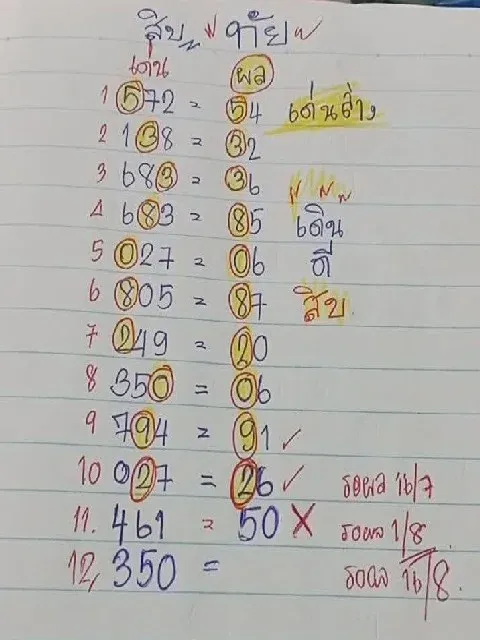 สิบ " ท้าย "
เด่น ผล
1 572 = 54 เด่นล่าง
2 138 = 32
3 683 = 36
4 683 = 85 เดิน
5 027 = 06 ดี
6 805 = 87 สิบ
7 249 = 20
8 350 = 06
9 794 = 91 ✓
10 027 = 26 ✓ รอผล 16/7
11. 461 = 50 X รอผล 1/8.
12, 350 = รอผล 16/8.